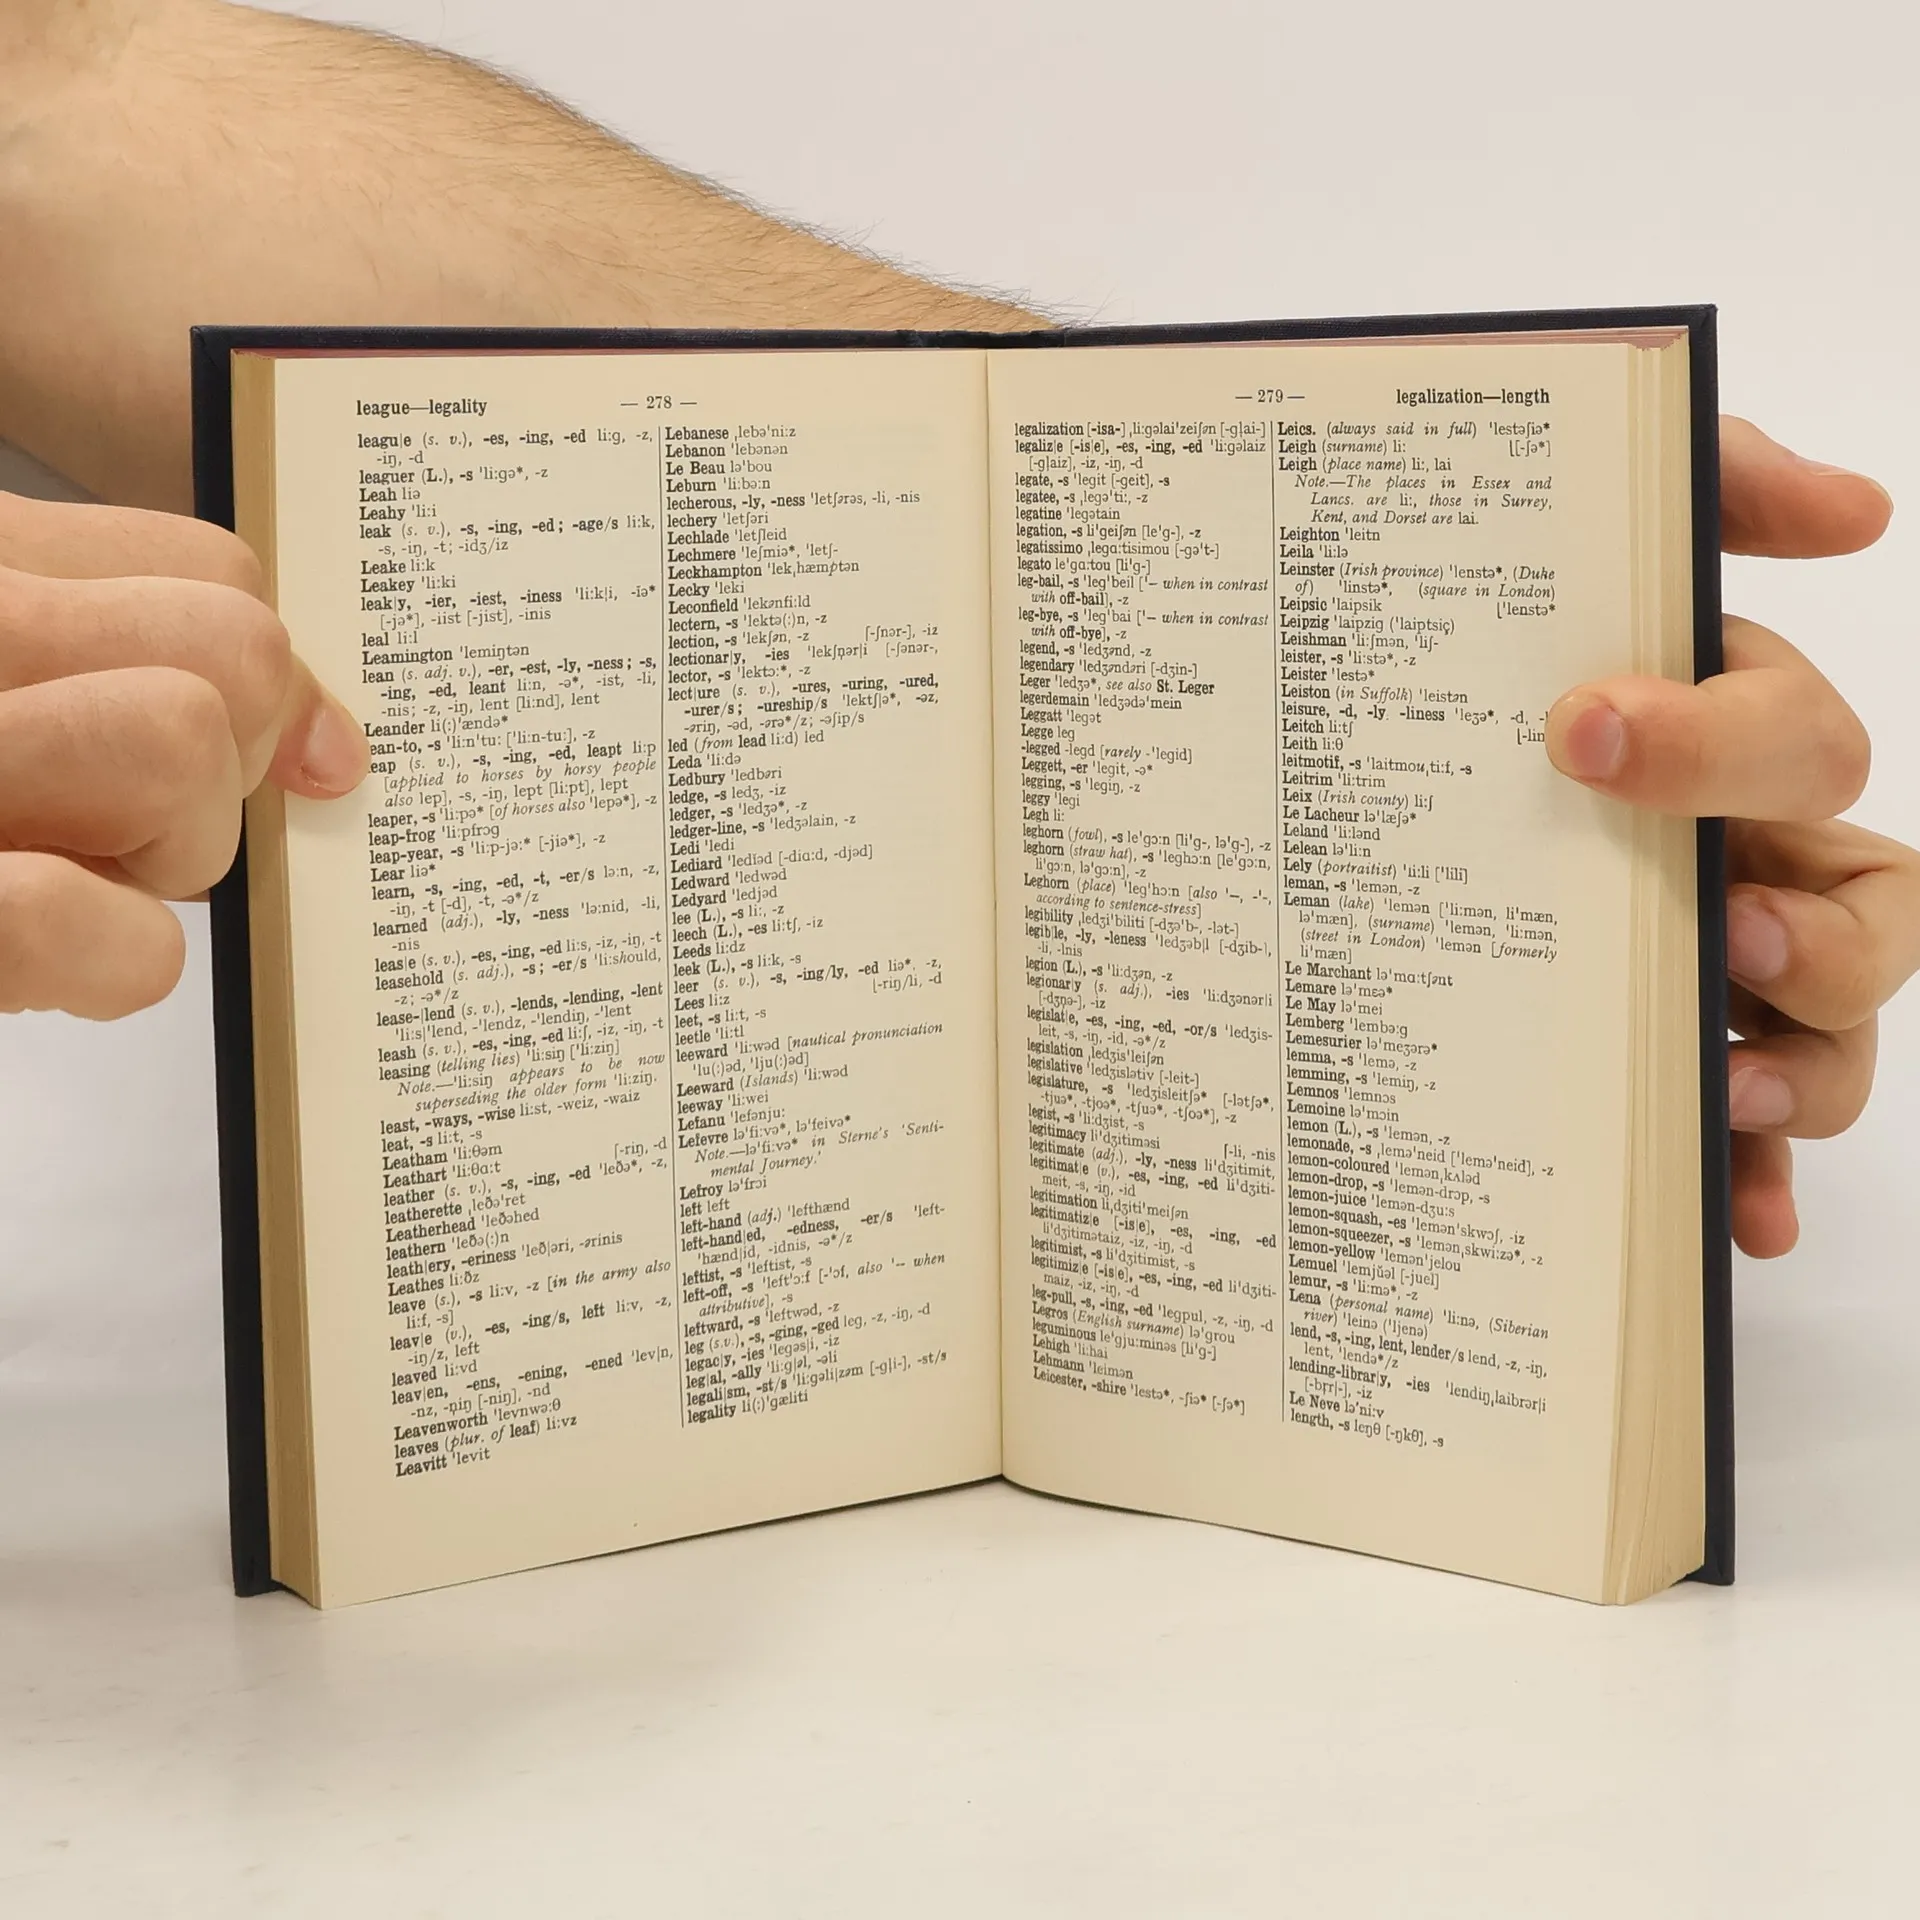 league—legality
— 278 —
leagu|e (s. v.), -es, -ing, -ed li:g, -z,
-iŋ, -d
leaguer (L.), -s 'li:gə*, -z
Leah liə
Leahy 'li:i
leak (s. v.), -s, -ing, -ed; -age/s li:k,
-s, -iŋ, -t; -idʒ/iz
Leake li:k
Leakey 'li:ki
leak|y, -ier, -iest, -iness 'li:k|i, -ĭə*
[-jə*], -iist [-jist], -inis
leal li:l
Leamington 'lemiŋtən
lean (s. adj. v.), -er, -est, -ly, -ness; -s,
-ing, -ed, leant li:n, -ə*, -ist, -li,
-nis; -z, -iŋ, lent [li:nd], lent
Leander li(:)'ændə*
ean-to, -s 'li:n'tu: ['li:n-tu:], -z
eap (s. v.), -s, -ing, -ed, leapt li:p
[applied to horses by horsy people
also lep], -s, -iŋ, lept [li:pt], lept
leaper, -s 'li:pə* [of horses also 'lepə*], -z
leap-frog 'li:pfrɔg
leap-year, -s 'li:p-jə:* [-jiə*], -z
Lear liə*
learn, -s, -ing, -ed, -t, -er/s lə:n, -z,
-iŋ, -t [-d], -t, -ə*/z
learned (adj.), -ly, -ness 'lə:nid, -li,
-nis
leas|e (s. v.), -es, -ing, -ed li:s, -iz, -iŋ, -t
leasehold (s. adj.), -s; -er/s 'li:should,
-z; -ə*/z
lease-|lend (s. v.), -lends, -lending, -lent
'li:s|'lend, -'lendz, -'lendiŋ, -'lent
leash (s. v.), -es, -ing, -ed li:ʃ, -iz, -iŋ, -t
leasing (telling lies) 'li:siŋ ['li:ziŋ]
Note.—'li:siŋ appears to be now
superseding the older form 'li:ziŋ.
least, -ways, -wise li:st, -weiz, -waiz
leat, -s li:t, -s
Leatham 'li:θəm
Leathart 'li:θɑ:t [-riŋ, -d
leather (s. v.), -s, -ing, -ed 'leðə*, -z,
leatherette ˌleðə'ret
Leatherhead 'leðəhed
leathern 'leðə(:)n
leath|ery, -eriness 'leð|əri, -ərinis
Leathes li:ðz
leave (s.), -s li:v, -z [in the army also
li:f, -s]
leav|e (v.), -es, -ing/s, left li:v, -z,
-iŋ/z, left
leaved li:vd
leav|en, -ens, -ening, -ened 'lev|n,
-nz, -ṇiŋ [-niŋ], -nd
Leavenworth 'levnwə:θ
leaves (plur. of leaf) li:vz
Leavitt 'levit
Lebanese ˌlebə'ni:z
Lebanon 'lebənən
Le Beau lə'bou
Leburn 'li:bə:n
lecherous, -ly, -ness 'letʃərəs, -li, -nis
lechery 'letʃəri
Lechlade 'letʃleid
Lechmere 'leʃmiə*, 'letʃ-
Leckhampton 'lekˌhæmptən
Lecky 'leki
Leconfield 'lekənfi:ld
lectern, -s 'lektə(:)n, -z
lection, -s 'lekʃən, -z [-ʃnər-], -iz
lectionar|y, -ies 'lekʃṇər|i [-ʃənər-,
lector, -s 'lektɔ:*, -z
lect|ure (s. v.), -ures, -uring, -ured,
-urer/s; -ureship/s 'lektʃ|ə*, -əz,
-əriŋ, -əd, -ərə*/z; -əʃip/s
led (from lead li:d) led
Leda 'li:də
Ledbury 'ledbəri
ledge, -s ledʒ, -iz
ledger, -s 'ledʒə*, -z
ledger-line, -s 'ledʒəlain, -z
Ledi 'ledi
Lediard 'lediəd [-diɑ:d, -djəd]
Ledward 'ledwəd
Ledyard 'ledjəd
lee (L.), -s li:, -z
leech (L.), -es li:tʃ, -iz
Leeds li:dz
leek (L.), -s li:k, -s
leer (s. v.), -s, -ing/ly, -ed liə*, -z,
Lees li:z [-riŋ/li, -d
leet, -s li:t, -s
leetle 'li:tl
leeward 'li:wəd [nautical pronunciation
'lu(:)əd, 'lju(:)əd]
Leeward (Islands) 'li:wəd
leeway 'li:wei
Lefanu 'lefənju:
Lefevre lə'fi:və*, lə'feivə*
Note.—lə'fi:və* in Sterne's 'Senti-
mental Journey.'
Lefroy lə'frɔi
left left
left-hand (adj.) 'lefthænd
left-hand|ed, -edness, -er/s 'left-
'hænd|id, -idnis, -ə*/z
leftist, -s 'leftist, -s
left-off, -s 'left'ɔ:f [-'ɔf, also '-- when
attributive], -s
leftward, -s 'leftwəd, -z
leg (s.v.), -s, -ging, -ged leg, -z, -iŋ, -d
legac|y, -ies 'legəs|i, -iz
leg|al, -ally 'li:g|əl, -əli
legali|sm, -st/s 'li:gəli|zəm [-gḷi-], -st/s
legality li(:)'gæliti
— 279 —
legalization—length
legalization [-isa-] ˌli:gəlai'zeiʃən [-gḷai-]
legaliz|e [-is|e], -es, -ing, -ed 'li:gəlaiz
[-gḷaiz], -iz, -iŋ, -d
legate, -s 'legit [-geit], -s
legatee, -s ˌlegə'ti:, -z
legatine 'legətain
legation, -s li'geiʃən [le'g-], -z
legatissimo ˌlegɑ:tisimou [-gə't-]
legato le'gɑ:tou [li'g-]
leg-bail, -s 'leg'beil ['– when in contrast
with off-bail], -z
leg-bye, -s 'leg'bai ['– when in contrast
with off-bye], -z
legend, -s 'ledʒənd, -z
legendary 'ledʒəndəri [-dʒin-]
Leger 'ledʒə*, see also St. Leger
legerdemain 'ledʒədə'mein
Leggatt 'legət
Legge leg
-legged -legd [rarely -'legid]
Leggett, -er 'legit, -ə*
legging, -s 'legiŋ, -z
leggy 'legi
Legh li:
leghorn (fowl), -s le'gɔ:n [li'g-, lə'g-], -z
leghorn (straw hat), -s 'leghɔ:n [le'gɔ:n,
li'gɔ:n, lə'gɔ:n], -z
Leghorn (place) 'leg'hɔ:n [also '–, -'-,
according to sentence-stress]
legibility ˌledʒi'biliti [-dʒə'b-, -lət-]
legib|le, -ly, -leness 'ledʒəb|l [-dʒib-],
-li, -lnis
legion (L.), -s 'li:dʒən, -z
legionar|y (s. adj.), -ies 'li:dʒənər|i
[-dʒnə-], -iz
legislat|e, -es, -ing, -ed, -or/s 'ledʒis-
leit, -s, -iŋ, -id, -ə*/z
legislation ˌledʒis'leiʃən
legislative 'ledʒislətiv [-leit-]
legislature, -s 'ledʒisleitʃə* [-lətʃə*,
-tjuə*, -tjoə*, -tʃuə*, -tʃoə*], -z
legist, -s 'li:dʒist, -s
legitimacy li'dʒitiməsi [-li, -nis
legitimate (adj.), -ly, -ness li'dʒitimit,
legitimat|e (v.), -es, -ing, -ed li'dʒiti-
meit, -s, -iŋ, -id
legitimation liˌdʒiti'meiʃən
legitimatiz|e [-is|e], -es, -ing, -ed
li'dʒitimətaiz, -iz, -iŋ, -d
legitimist, -s li'dʒitimist, -s
legitimiz|e [-is|e], -es, -ing, -ed li'dʒiti-
maiz, -iz, -iŋ, -d
leg-pull, -s, -ing, -ed 'legpul, -z, -iŋ, -d
Legros (English surname) lə'grou
leguminous le'gju:minəs [li'g-]
Lehigh 'li:hai
Lehmann 'leimən
Leicester, -shire 'lestə*, -ʃiə* [-ʃə*]
Leics. (always said in full) 'lestəʃiə*
Leigh (surname) li: [[-ʃə*]
Leigh (place name) li:, lai
Note.—The places in Essex and
Lancs. are li:, those in Surrey,
Kent, and Dorset are lai.
Leighton 'leitn
Leila 'li:lə
Leinster (Irish province) 'lenstə*, (Duke
of) 'linstə*, (square in London)
Leipsic 'laipsik ['lenstə*
Leipzig 'laipzig ('laiptsiç)
Leishman 'li:ʃmən, 'liʃ-
leister, -s 'li:stə*, -z
Leister 'lestə*
Leiston (in Suffolk) 'leistən
leisure, -d, -ly, -liness 'leʒə*, -d, -l
Leitch li:tʃ [-lin
Leith li:θ
leitmotif, -s 'laitmouˌti:f, -s
Leitrim 'li:trim
Leix (Irish county) li:ʃ
Le Lacheur lə'læʃə*
Leland 'li:lənd
Lelean lə'li:n
Lely (portraitist) 'li:li ['lili]
leman, -s 'lemən, -z
Leman (lake) 'lemən ['li:mən, li'mæn,
lə'mæn], (surname) 'lemən, 'li:mən,
(street in London) 'lemən [formerly
li'mæn]
Le Marchant lə'mɑ:tʃənt
Lemare lə'mɛə*
Le May lə'mei
Lemberg 'lembə:g
Lemesurier lə'meʒərə*
lemma, -s 'lemə, -z
lemming, -s 'lemiŋ, -z
Lemnos 'lemnɔs
Lemoine lə'mɔin
lemon (L.), -s 'lemən, -z
lemonade, -s ˌlemə'neid ['lemə'neid], -z
lemon-coloured 'lemənˌkʌləd
lemon-drop, -s 'lemən-drɔp, -s
lemon-juice 'lemən-dʒu:s
lemon-squash, -es 'lemən'skwɔʃ, -iz
lemon-squeezer, -s 'lemənˌskwi:zə*, -z
lemon-yellow 'lemən'jelou
Lemuel 'lemjŭəl [-juel]
lemur, -s 'li:mə*, -z
Lena (personal name) 'li:nə, (Siberian
river) 'leinə ('ljenə)
lend, -s, -ing, lent, lender/s lend, -z, -iŋ,
lent, 'lendə*/z
lending-librar|y, -ies 'lendiŋˌlaibrər|i
[-brr|-], -iz
Le Neve lə'ni:v
length, -s leŋθ [-ŋkθ], -s